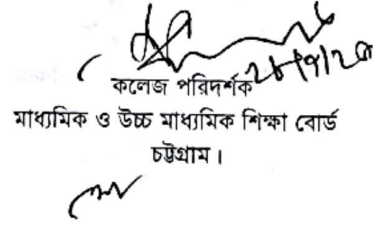 কলেজ পরিদর্শক
মাধ্যমিক ও উচ্চ মাধ্যমিক শিক্ষা বোর্ড
চট্টগ্রাম।